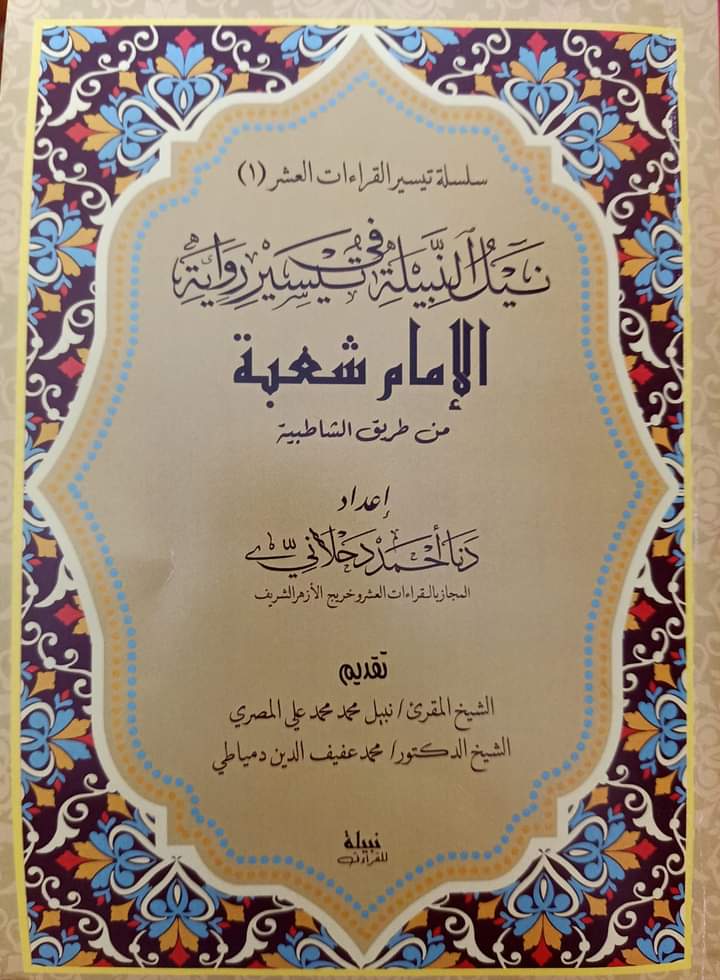 سلسلة تيسير القراءات العشر (١)
نَيْلُ النَّبِيْلَةِ فِي تَيْسِيْرِ رِوَايَةِ
الإمام شعبة
من طريق الشاطبية
إعداد
دنا أحمد دحلاني
المجاز بالقراءات العشر وخريج الأزهر الشريف
تقديم
الشيخ المقرئ / نبيل محمد محمد علي المصري
الشيخ الدكتور / محمد عفيف الدين دمياطي
نبيلة
للقراءات